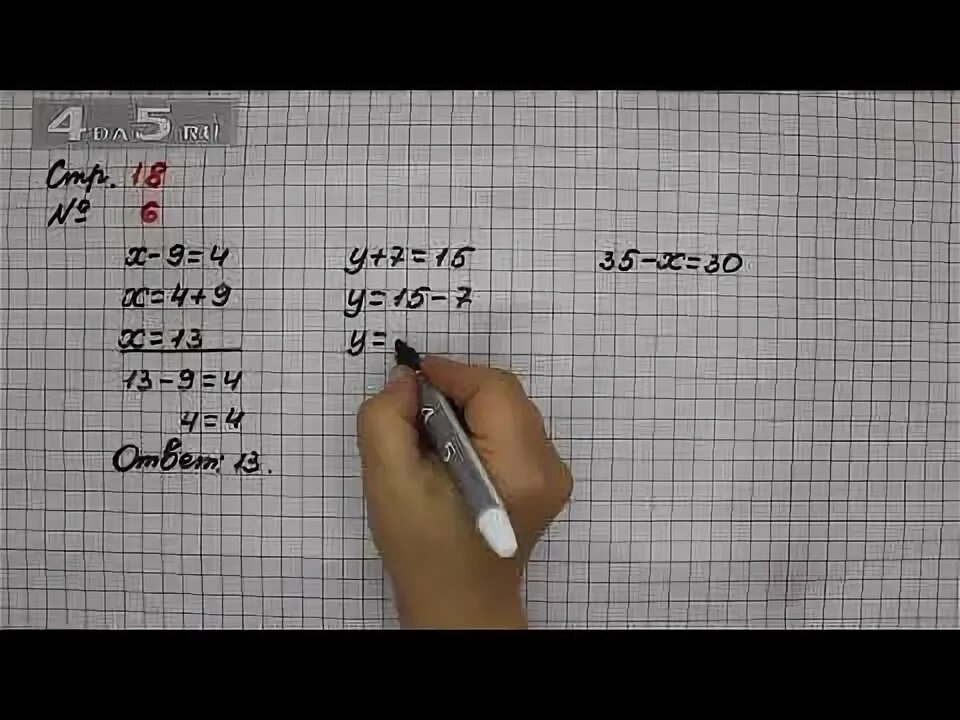 4 DA 5 RU
Стр. 18
№ 6
x - 9 = 4
x = 4 + 9
x = 13
13 - 9 = 4
4 = 4
Ответ: 13.
y + 7 = 15
y = 15 - 7
y =
35 - x = 30